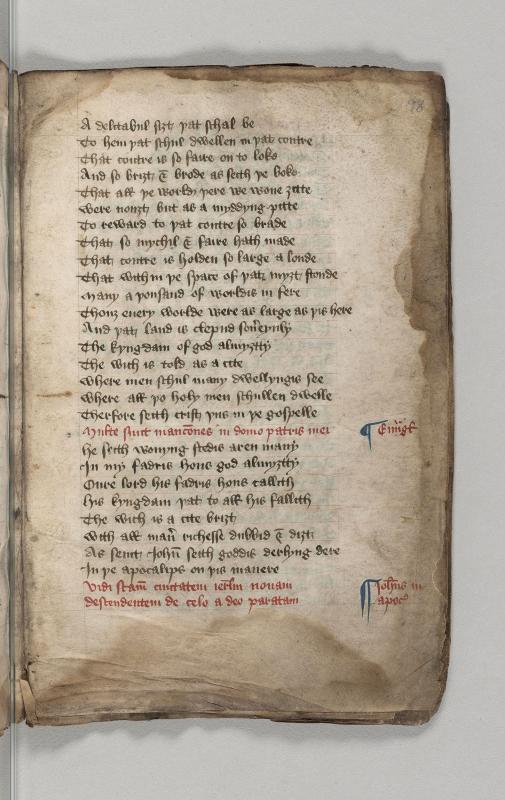 98
A delitabul siȝt þat schal be
To hem þat schul dwellen in þat contre
That contre is so faire on to loke
And so briȝt & brode as seith þe boke
That all þe world þere we wone ȝitte
Were nouȝt but as a myddyng pitte
To reward to þat contre so brade
That so mychil & faire hath made
That contre is holden so large a londe
That within þe space of þat myȝt stonde
Many a þousand of worldis in fere
Thouȝ euery worlde were as large as þis here
And þat land is clepud
The kyngdam of god almyȝtty
The wich is told as a cite
Where men schul many dwellyngis see
Where all þo holy men schullen dwelle
Therfore seith crist þus in þe gospelle
Multe sunt mancones in domo patris mei
Euugł
he seith wonyng stedis aren many
In my fadris hous god almyȝtty
Oure lord his fadris hous callith
his kyngdam þat to all his fallith
The wich is a cite briȝt
With all man̄ richesse dubbid & diȝt
As seint Joħn seith goddis derlyng dere
In þe apocalips on þis manere
Vidi scām ciuitatem ierłm nouam
Joħnis in
descendentem de celo a deo paratam
apoc̄